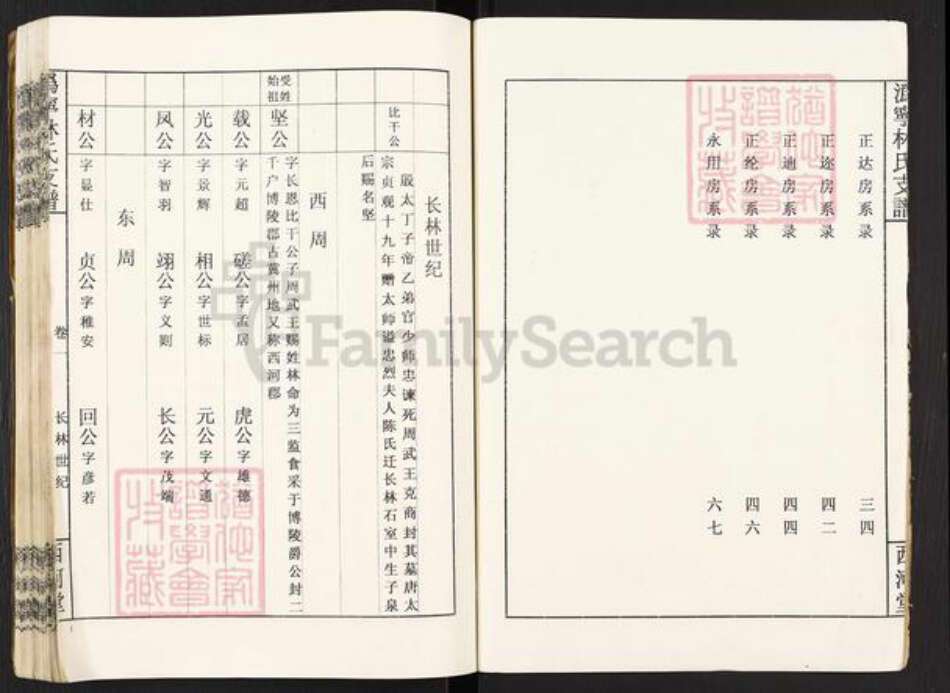 沩宁林氏支谱
正达房系录 三四
正迩房系录 四二
正迪房系录 四四
正纶房系录 四六
永用房系录 六七
西河堂
长林世纪
比干公
殷太丁子帝乙弟官少师忠谏死周武王克商封其墓唐太
宗贞观十九年赠太师谥忠烈夫人陈氏迁长林石室中生子泉
后赐名坚
西周
受姓
始祖
坚公
字长恩比干公子周武王赐姓林命为三监食采于博陵爵公封二
千户博陵郡古冀州地又称西河郡
载公 字元超 磋公 字孟居 虎公 字雄德
光公 字景辉 相公 字世标 元公 字文通
凤公 字智羽 翊公 字义则 长公 字茂端
东周
材公 字曼仕 贞公 字稚安 回公 字彦若
林氏支谱
卷一
长林世纪
西河堂
FamilySearch